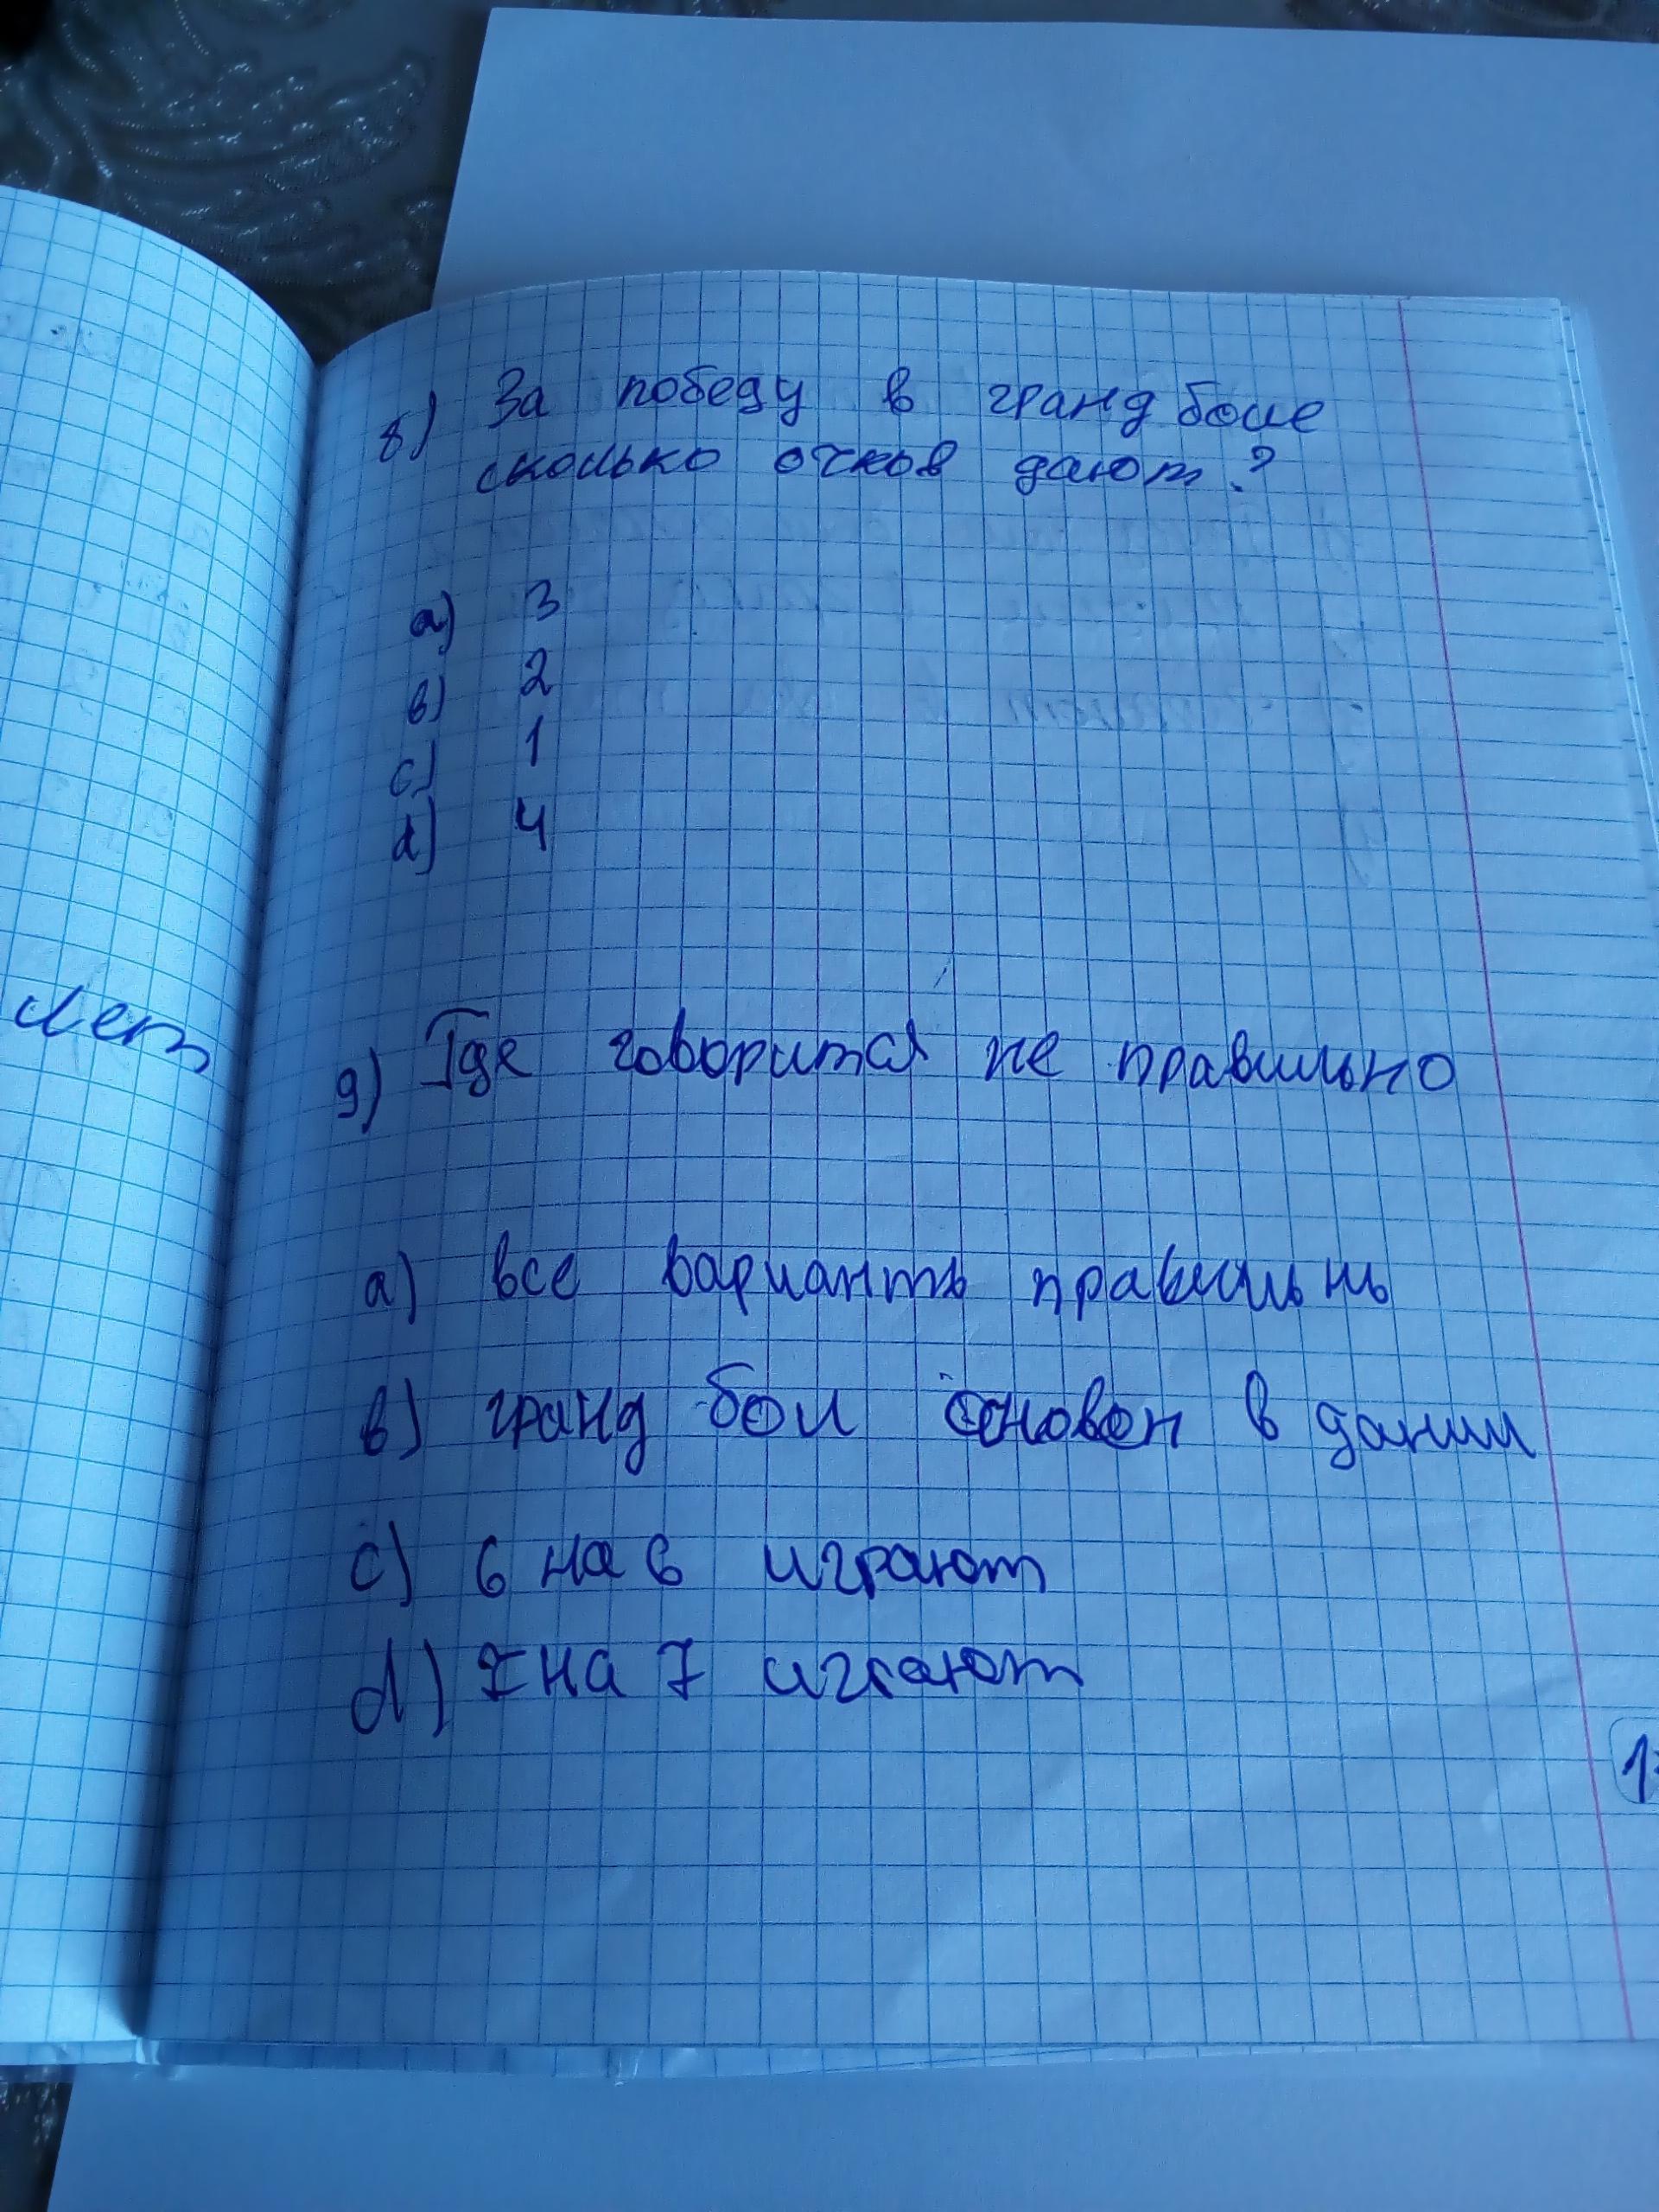 лет
8) За победу в гранд боле
сколько очков дают?
a) 3
b) 2
c) 1
d) 4
9) Где говорится не правильно
a) все варианты правильны
b) гранд бол основон в дании
c) 6 на 6 играют
d) 7 на 7 играют